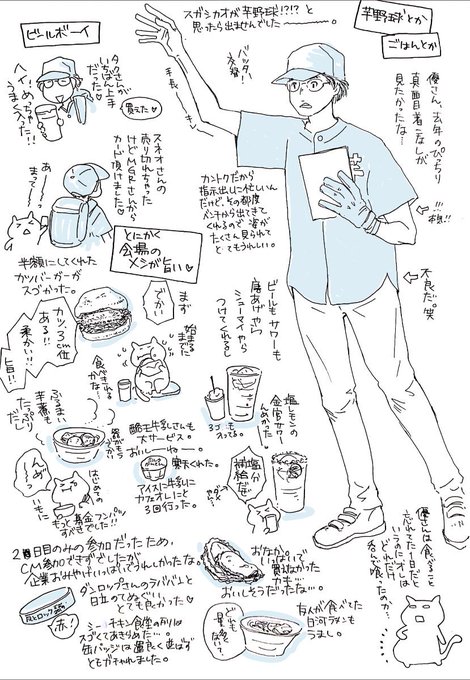 スガシカオが半野球!?!?と
思ったら出ませんでした
半野球とか
ごはんとか
ビールボーイ
タクさんが
いちばん上手
だった♡
買えた♡
ヘイ!めっちゃ
うまく入った!!
バッター
友募
手長
優さん、去年のぴっちり
真面目着こなしが
見たかったな…
スネオさんの
売り切れちゃった
けどMGRさんから
カード頂けました♡
カントクだから
指示出しに忙しいん
だけど、その都度
ベンチから出てきて
くれるので姿が
たくさん見られて
とてもうれしい。
あ
まって
とにかく
会場の
メシが旨い♡
不良だ。笑
半額にしてくれた
カツバーガーが
スゴかった。
まず
でかい
カツ、3cm位
ある!!
柔かい!!!
旨!!
始まる
まで
食べきれる
かな…
ビールもサワーも
唐あげやら
シューマイやら
つけてくれるし
塩レモンの
金宮サワー
んめかった
3コも
入ってる。
塩分
補給だぜ
ふるまい
芋煮も
たっぷり
だし
酪王牛乳さんも
大サービス。
おいしーねー。
凍ってくれた。
アイスに牛乳に
カフェオレにと
3回行った。
んめ
はじめての
いもに
もっと募金フンパツ
すべきでした!!
優さんは食べること
忘れてた1日だと
いうのにオレは
どれだけ
呑んで喰ったのか…
2日目のみの参加だったため、
CM参加できずでしたが
企業おみやげいっぱいでうれしかったな。
ダンロップさんのラババンと
日立のてぬぐい
とても良かった♡
風とロック芋
赤!
おなか
いっぱいで
買えなかった
カキ…
おいしそうだったな…
シーチキン食堂の列は
スゴくてあきらめた…。
缶バッジは運良く並ばず
ともガチャれました。
友人が食べてた
白河ラーメンも
うまし。